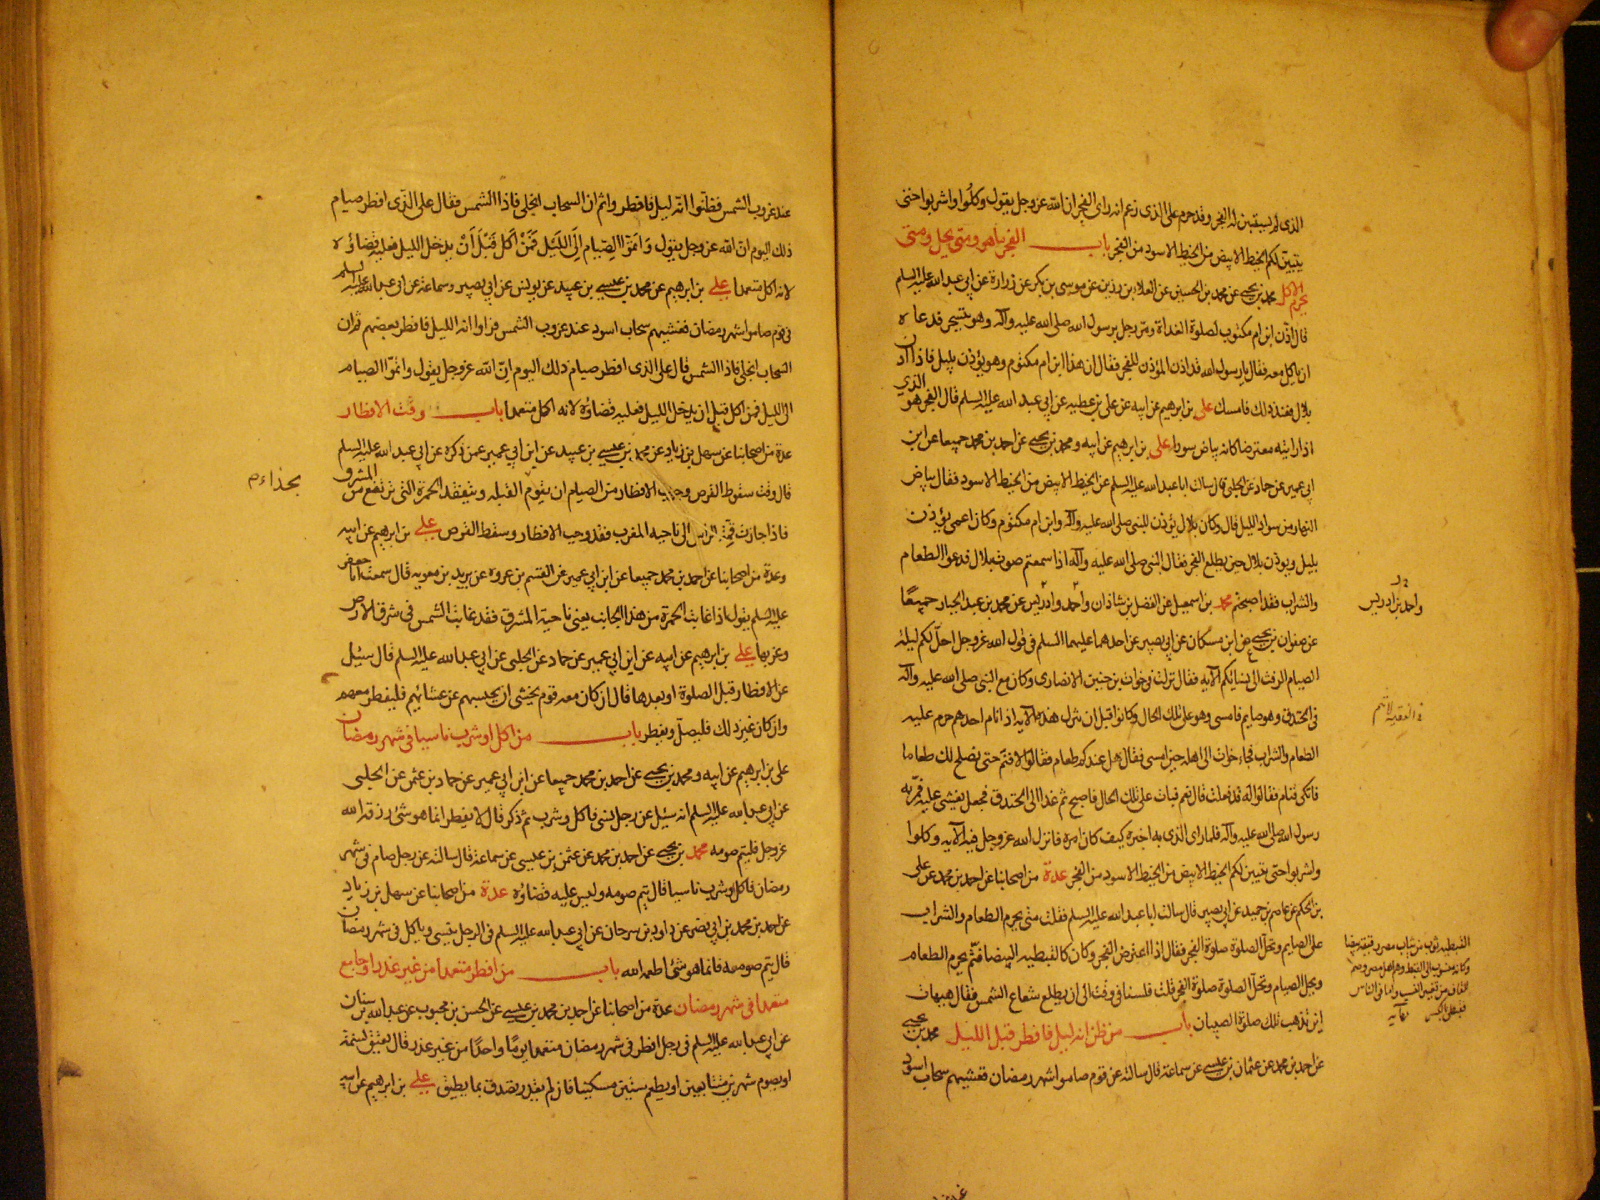 الذى لم يستيقن له الفجر وقد حرم على الذى زعم انه راى الفجر ان الله عز وجل يقول وكلوا واشربوا حتى
يتبين لكم الخيط الابيض من الخيط الاسود من الفجر باب الفجر ما هو ومتى يحل ومتى
يحرم الاكل محمد بن يحيى عن محمد بن الحسين عن العلاء بن رزين عن موسى بن بكر عن زرارة عن ابى عبد الله عليه السلم
قال اذن ابن ام مكتوم لصلوة الغداة ومر رجل برسول الله صلى الله عليه وآله وهو يتسحر فدعاه
ان ياكل معه فقال يا رسول الله قد اذن المؤذن للفجر فقال ان هذا ابن ام مكتوم وهو يؤذن بليل فاذا اذن
بلال فعند ذلك فامسك على بن ابرهيم عن ابيه عن على بن عطيه عن ابى عبد الله عليه السلم قال الفجر هو الذى
اذا رايته معترضا كانه بياض سورا على بن ابرهيم عن ابيه ومحمد بن يحيى عن احمد بن محمد جميعا عن ابن
ابى عمير عن حماد عن الحلبى قال سالت ابا عبد الله عليه السلم عن الخيط الابيض من الخيط الاسود فقال بياض
النهار من سواد الليل قال وكان بلال يؤذن للنبى صلى الله عليه وآله وابن ام مكتوم وكان اعمى يؤذن
بليل ويوذن بلال حين يطلع الفجر فقال النبى صلى الله عليه وآله اذا سمعتم صوت بلال فدعوا الطعام
والشراب فقد اصبحتم محمد بن اسمعيل عن الفضل بن شاذان واحمد وادريس عن محمد بن عبد الجبار جميعا
واحمد بن ادريس
عن صفوان بن يحيى عن ابن مسكان عن ابى بصير عن احدهما عليهما السلم فى قول الله عز وجل احل لكم ليلة
الصيام الرفث الى نسائكم الآيه فقال نزلت فى خوات بن جبير الانصارى وكان مع النبى صلى الله عليه وآله
فى الخندق وهو صايم فامسى وهو على تلك الحال وكانوا قبل ان تنزل هذه الآيه اذا نام احدهم حرم عليه
الطعام والشراب فجاء خوات الى اهله حين امسى فقال هل عندكم طعام فقالوا لا تنم حتى نصلح لك طعاما
فاتكى فنام فقالوا له قد فعلت قال نعم فبات على تلك الحال فاصبح ثم غدا الى الخندق فجعل يغشى عليه فمر به
رسول الله صلى الله عليه وآله فلما راى الذى به اخبره كيف كان امره فانزل الله عز وجل فيه الآيه وكلوا
واشربوا حتى يتبين لكم الخيط الابيض من الخيط الاسود من الفجر عدة من اصحابنا عن احمد بن محمد عن على
بن الحكم عن عاصم بن حميد عن ابى بصير قال سالت ابا عبد الله عليه السلم فقلت متى يحرم الطعام والشراب
على الصايم وتحل الصلوة صلوة الفجر فقال اذا اعترض الفجر وكان كالقبطيه البيضا فثم يحرم الطعام
ويحل الصيام وتحل الصلوة صلوة الفجر قلت فلسنا فى وقت الى ان يطلع شعاع الشمس فقال هيهات
اين تذهب تلك صلوة الصبيان باب من ظن انه ليل فافطر قبل الليل محمد بن يحيى
عن احمد بن محمد عن عثمان بن عيسى عن سماعة قال سالته عن قوم صاموا شهر رمضان فغشيهم سحاب اسود
عند غروب الشمس فظنوا انه ليل فافطروا ثم ان السحاب انجلى فاذا الشمس فقال على الذى افطر صيام
ذلك اليوم ان الله عز وجل يقول وَاَتِمّوا الصِّيام اِلَى اللَّيل فَمَنْ اَكَلَ قَبْلَ أَنْ يدخل الليل فعليه قضاؤه
لانه اكل متعمدا على بن ابرهيم عن محمد بن عيسى بن عبيد عن يونس عن ابى بصير وسماعة عن ابى عبد الله عليه السلم
فى قوم صاموا شهر رمضان فغشيهم سحاب اسود عند غروب الشمس فراوا انه الليل فافطر بعضهم ثم ان
السحاب انجلى فاذا الشمس قال على الذى افطر صيام ذلك اليوم انّ الله عز وجل يقول واتمّوا الصيام
الى الليل فمن اكل قبل ان يدخل الليل فعليه قضاؤه لانه اكل متعمدا باب وقت الافطار
عدة من اصحابنا عن سهل بن زياد عن محمد بن عيسى بن عبيد عن ابن ابى عمير عمن ذكره عن ابى عبد الله عليه السلم
قال وقت سقوط القرص ووجوب الافطار من الصيام ان يقوم القبله ويتفقد الحمرة التى ترتفع من المشرق
بحذاء
فاذا جازت قمة الراس الى ناحيه المغرب فقد وجب الافطار وسقط القرص على بن ابرهيم عن ابيه
وعدة من اصحابنا عن احمد بن محمد جميعا عن ابن ابى عمير عن القسم بن عروه عن بريد بن معويه قال سمعت ابا جعفر
عليه السلم يقول اذا غابت الحمرة من هذا الجانب يعنى ناحية المشرق فقد غابت الشمس فى شرق الارض
وغربها على بن ابرهيم عن ابيه عن ابن ابى عمير عن حماد عن الحلبى عن ابى عبد الله عليه السلم قال سئل
عن الافطار قبل الصلوة او بعدها قال ان كان معه قوم يخشى ان يحبسهم عن عشائهم فليفطر معهم
وان كان غير ذلك فليصل ويفطر باب من اكل او شرب ناسيا فى شهر رمضان
على بن ابرهيم عن ابيه ومحمد بن يحيى عن احمد بن محمد جميعا عن ابن ابى عمير عن حماد بن عثمن عن الحلبى
عن ابى عبد الله عليه السلم انه سئل عن رجل نسى فاكل وشرب ثم ذكر قال لا يفطر انما هو شئ رزقه الله
عز وجل فليتم صومه محمد بن يحيى عن احمد بن محمد عن عثمن بن عيسى عن سماعة قال سالته عن رجل صام فى شهر
رمضان فاكل وشرب ناسيا قال يتم صومه وليس عليه قضاؤه عدة من اصحابنا عن سهل بن زياد
عن احمد بن محمد بن ابى نصر عن داود بن سرحان عن ابى عبد الله عليه السلم فى الرجل ينسى وياكل فى شهر رمضان
قال يتم صومه فانما هو شئ اطعمه الله باب من افطر متعمدا من غير عذر او جامع
متعمدا فى شهر رمضان عدة من اصحابنا عن احمد بن محمد بن عيسى عن الحسن بن محبوب عن عبد الله بن سنان
عن ابى عبد الله عليه السلم فى رجل افطر فى شهر رمضان متعمدا يوما واحدا من غير عذر قال يعتق نسمة
او يصوم شهرين متتابعين او يطعم ستين مسكينا فان لم يقدر يصدق بما يطيق على بن ابرهيم عن ابيه